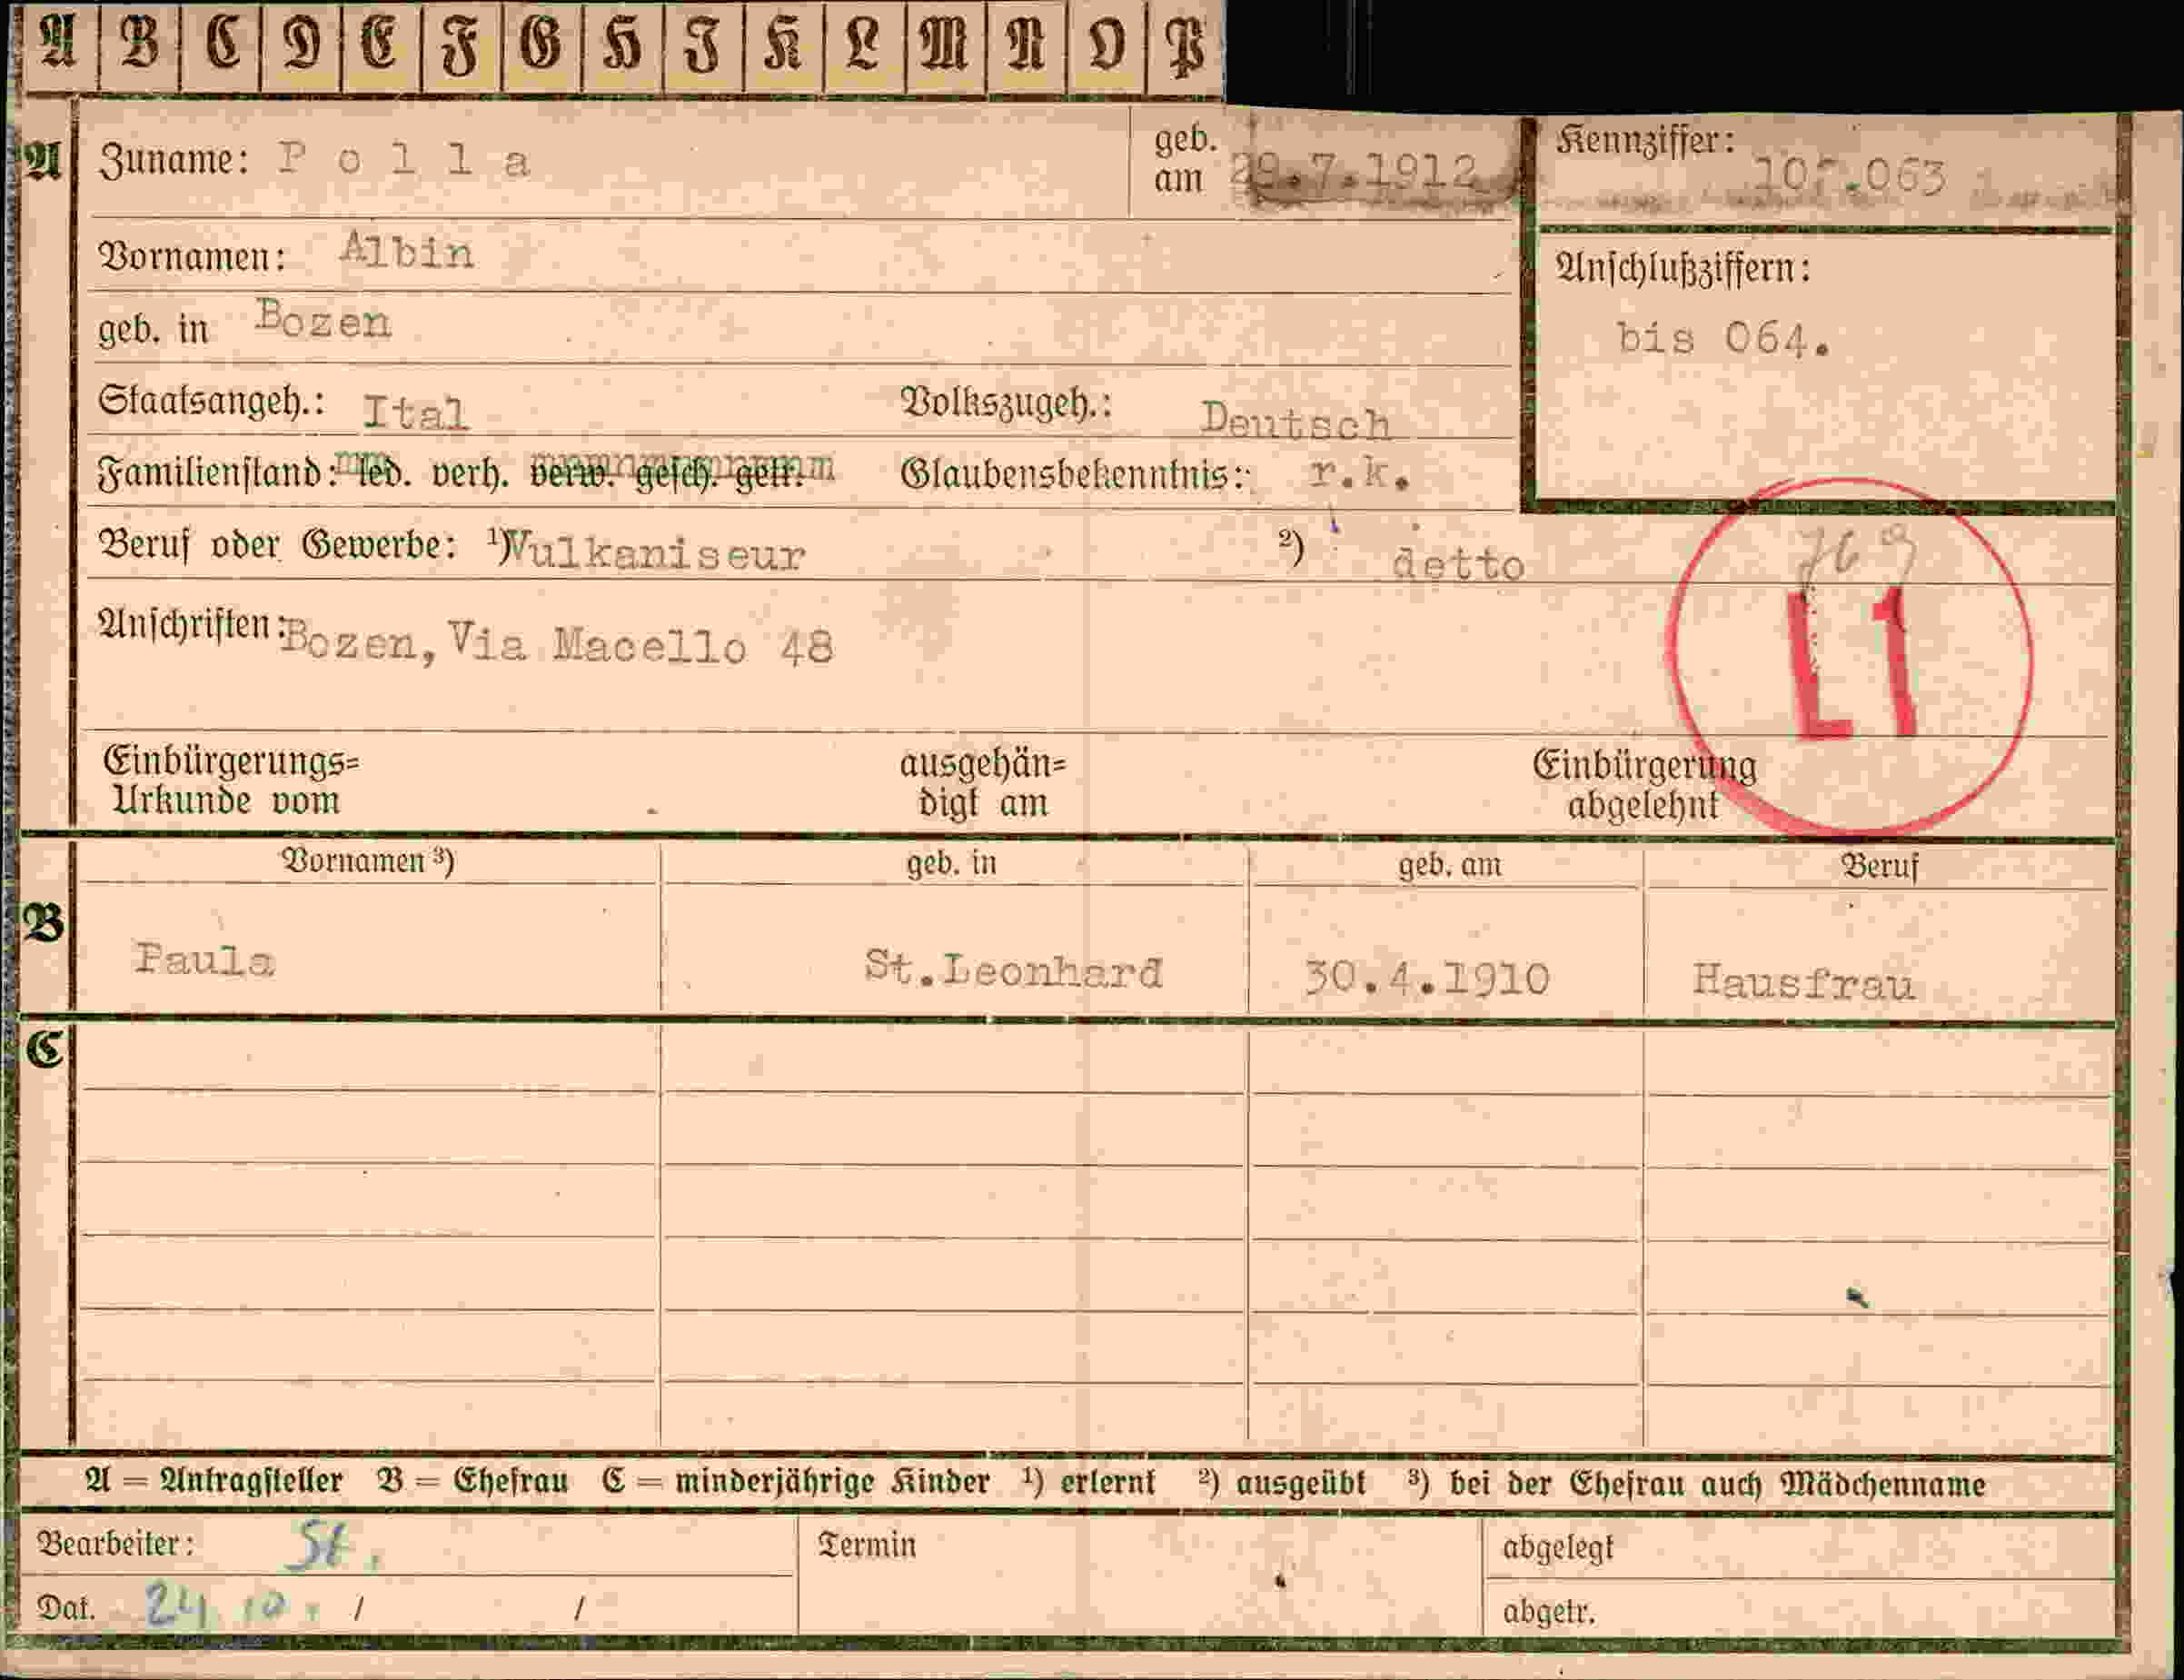 A B C D E F G H J K L M N O P
A
Zuname: Polla
geb. am 29.7.1912
Kennziffer:
Vornamen: Albin
geb. in Bozen
Anschlußziffern:
bis 064.
Staatsangeh.: Ital Volkszugeh.: Deutsch
Familienstand: led. verh. verw. gesch. getr. Glaubensbekenntnis: r.k.
Beruf oder Gewerbe: ¹) Vulkaniseur ²) detto
769
L1
Anschriften: Bozen, Via Macello 48
Einbürgerungs= ausgehän= Einbürgerung
Urkunde vom digt am abgelehnt
Vornamen ³) geb. in geb. am Beruf
B
Paula St.Leonhard 30.4.1910 Hausfrau
C
A = Antragsteller B = Ehefrau C = minderjährige Kinder ¹) erlernt ²) ausgeübt ³) bei der Ehefrau auch Mädchenname
Bearbeiter: St. Termin abgelegt
Dat. 24.10. / / abgetr.